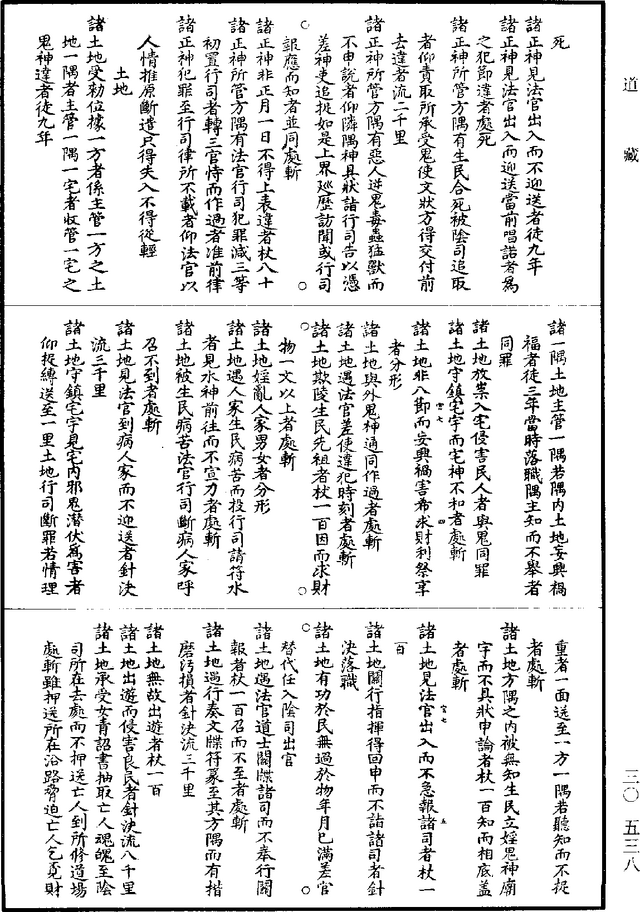 道藏
死
諸正神見法官出入而不迎送者徒九年
諸正神見法官出入而迎送當前唱諾者爲
之犯節違者處死
諸正神所管方隅有生民合死被陰司追取
者仰責取所承受鬼使文狀方得交付前
去違者流二千里
諸正神所管方隅有惡人逆鬼毒蟲猛獸而
不申說者仰隣隅神具狀諸行司告以憑
差神吏追捉如是上界廵歷訪聞或行司
報應而知者並同處斬
諸正神非正月一日不得上表違者杖八十
諸正神所管方隅有法官行司犯罪減三等
初置行司者轉三官恃而作過者准前律
諸正神犯罪至行司律所不載者仰法官以
人情推原斷遣只得失入不得從輕
土地
諸土地受勑位據一方者係主管一方之土
地一隅者主管一隅一宅者收管一宅之
鬼神違者徒九年
諸一隅土地主管一隅若隅内土地妄興禍
福者徒三年當時落職隅主知而不舉者
同罪
諸土地放祟入宅侵害民人者與鬼同罪
諸土地守鎮宅宇而宅神不和者處斬
諸土地非八節而妄興禍害希求財利祭享
者分形
諸土地與外鬼神通同作過者處斬
諸土地遇法官差使違犯時刻者處斬
諸土地欺陵生民先祖者杖一百因而求財
物一文以上者處斬
諸土地婬亂人家男女者分形
諸土地遇人家生民病苦而投行司請符水
者見水神前往而不宣力者處斬
諸土地被生民病苦法官行司斷病人家呼
召不到者處斬
諸土地見法官到病人家而不迎送者針決
流三千里
諸土地守鎮宅宇見宅内邪鬼潜伏爲害者
仰捉縛送至一里土地行司斷罪若情理
重者一面送至一方一隅若聽知而不捉
者處斬
諸土地方隅之内被無知生民立婬鬼神廟
宇而不具狀申論者杖一百知而相底蓋
者處斬
諸土地見法官出入而不急報諸司者杖一
百
諸土地關行指揮得回申而不詣諸司者針
決落職
諸土地有功於民無過於物年月已滿差官
替代任入陰司出官
諸土地遇法官道士關牒諸司而不奉行關
報者杖一百召而不至者處斬
諸土地遇行奏文牒符篆至其方隅而有楷
磨污損者針決流三千里
諸土地無故出遊者杖一百
諸土地出遊而侵害良民者針決流八千里
諸土地承受女青詔書抽取亡人魂魄至陰
司所在去處而不押送亡人到所修道場
處斬雖押送所在沿路脅迫亡人乞覓財
三〇 五三八